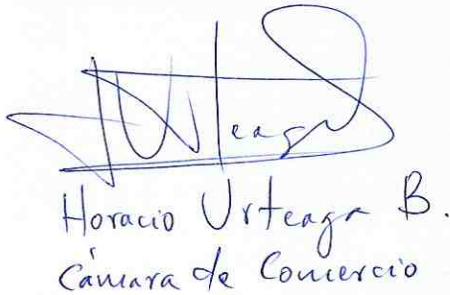 Horacio Urteaga B.
Cámara de Comercio